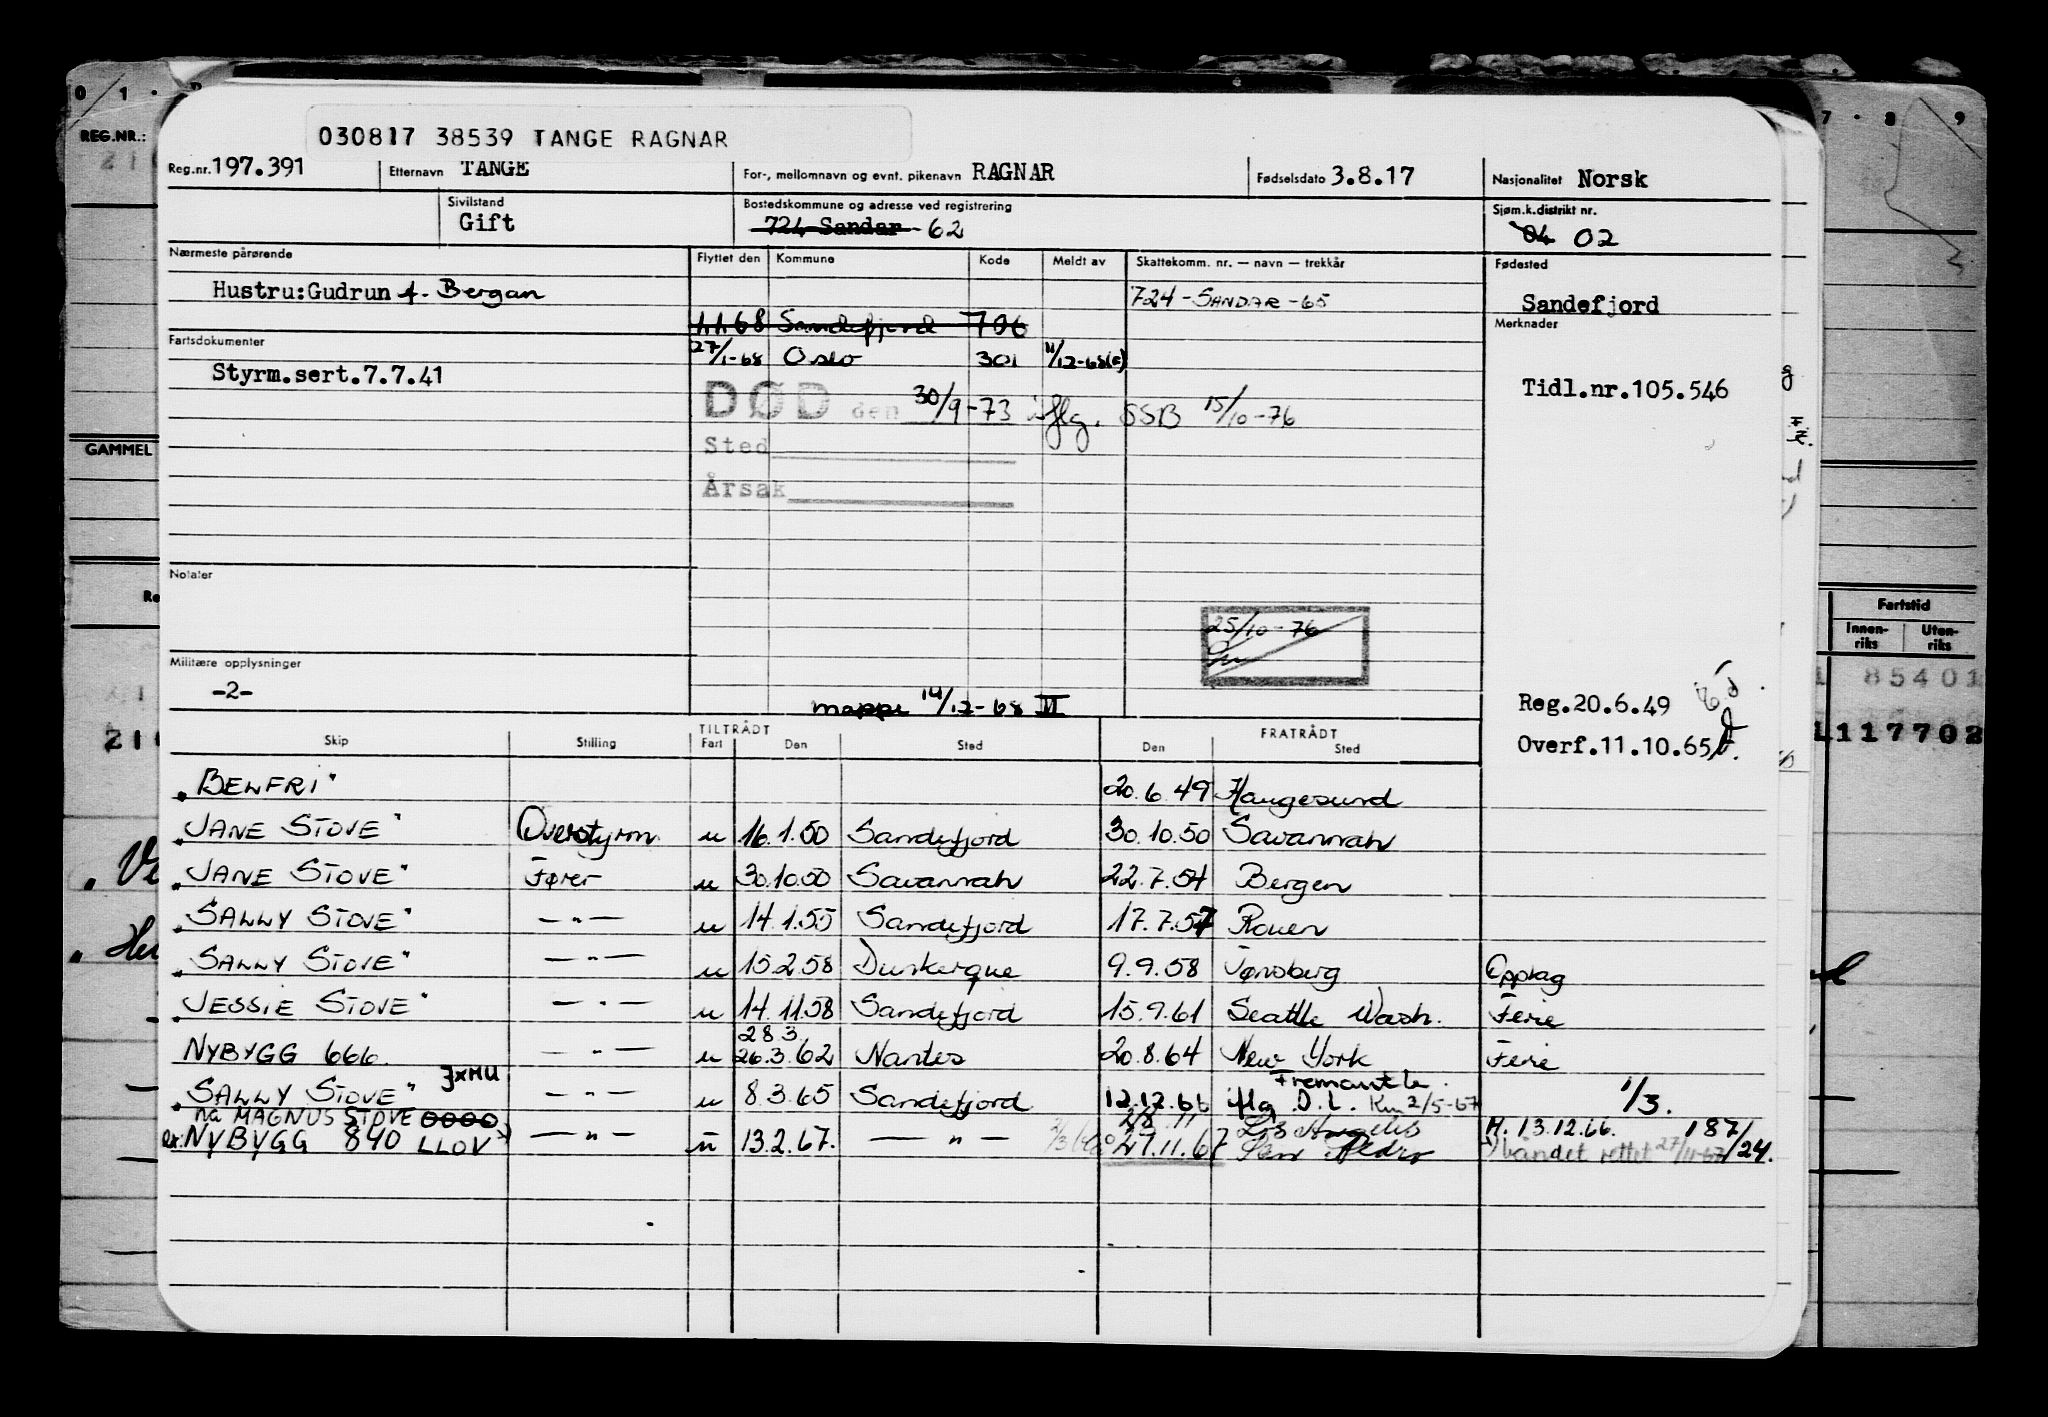 030817 38539 TANGE RAGNAR
Reg.nr. 197.391 Etternavn TANGE For-, mellomnavn og evnt. pikenavn RAGNAR Fødselsdato 3.8.17 Nasjonalitet Norsk
Sivilstand Gift Bostedskommune og adresse ved registrering 724 Sandar - 62 Sjøm.k.distrikt nr. 04 02
Nærmeste pårørende Flyttet den Kommune Kode Meldt av Skattekomm. nr. — navn — trekkår Fødested
Hustru: Gudrun f. Bergan 724 - SANDAR - 65 Sandefjord
1.1.68 Sandefjord 706 Merknader
Fartsdokumenter 27/1-68 Oslo 301 11/12-68
Styrm.sert.7.7.41 Tidl.nr.105.546
DØD den 30/9-73 iflg. SSB 15/10-76
Sted
Årsak
Notater
25/10-76
Militære opplysninger
-2-
mappe 14/12-68 II
Reg.20.6.49
Overf.11.10.65
Skip Stilling TILTRÅDT Fart Den Sted FRATRÅDT Den Sted
"BELFRI" 20.6.49 Haugesund
"JANE STOVE" Overstyrm. u 16.1.50 Sandefjord 30.10.50 Savannah
"JANE STOVE" Fører u 30.10.50 Savannah 22.7.54 Bergen
"SALLY STOVE" — " — u 14.1.55 Sandefjord 17.7.57 Rouen
"SALLY STOVE" — " — u 15.2.58 Dunkerque 9.9.58 Tønsberg Opplag
"JESSIE STOVE" — " — u 14.11.58 Sandefjord 15.9.61 Seattle Wash. Ferie
28.3.
NYBYGG 666. — " — u 26.3.62 Nantes 20.8.64 New York Ferie
JXMU Fremantle
"SALLY STOVE" — " — u 8.3.65 Sandefjord 12.12.66 iflg D.L. 2/5-67 1/3.
nå MAGNUS STOVE Los Angeles H. 13.12.66. 187/24.
ex. NYBYGG 840 LLOV — " — u 13.2.67. — " — 27.11.67 San Pedro båndet rettet 27/11-67
REG.NR.:
GAMMEL
Fartstid
Innen-riks Uten-riks
85401
117702